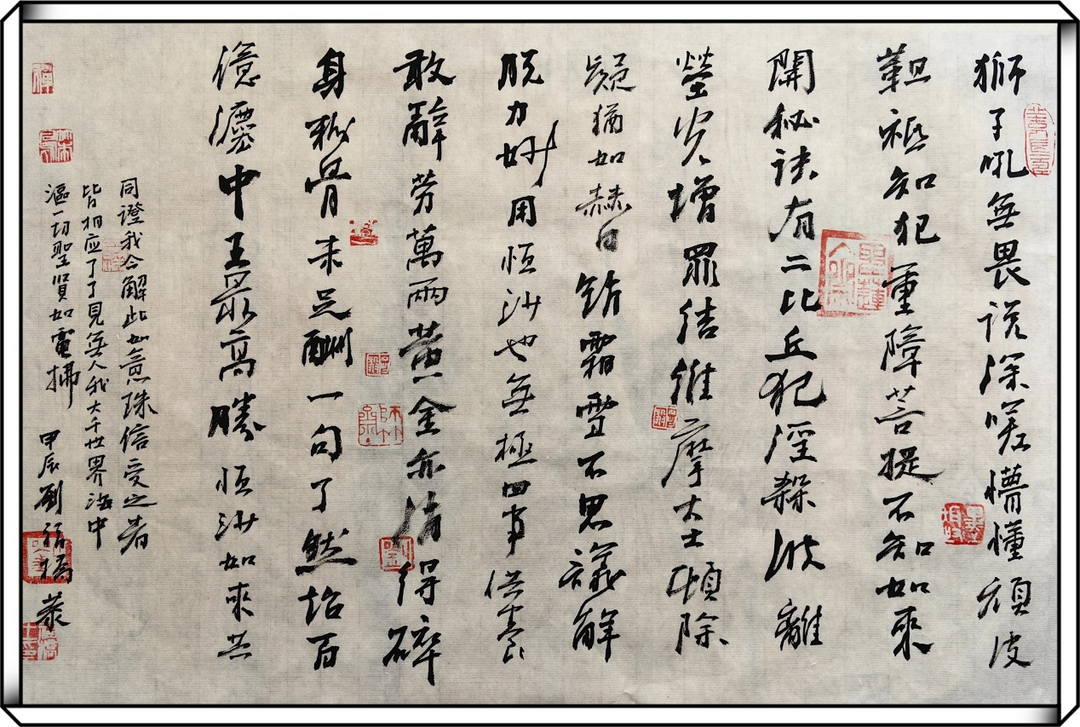 獅子吼無畏說深嗟懵懂頑皮
靼祗知犯重障菩提不知如來
開秘訣有二比丘犯淫殺波離
螢光增罪結維摩大士頓除
疑猶如赫日銷霜雪不思議解
脫力妙用恒沙也無極四事供養
敢辭勞萬兩黃金亦消得碎
身粉骨未足酬一句了然超百
億法中王最高勝恒沙如來共
同證我今解此如意珠信受之者
皆相应了了見無人我大千世界海中
漚一切聖賢如電拂
甲辰劉